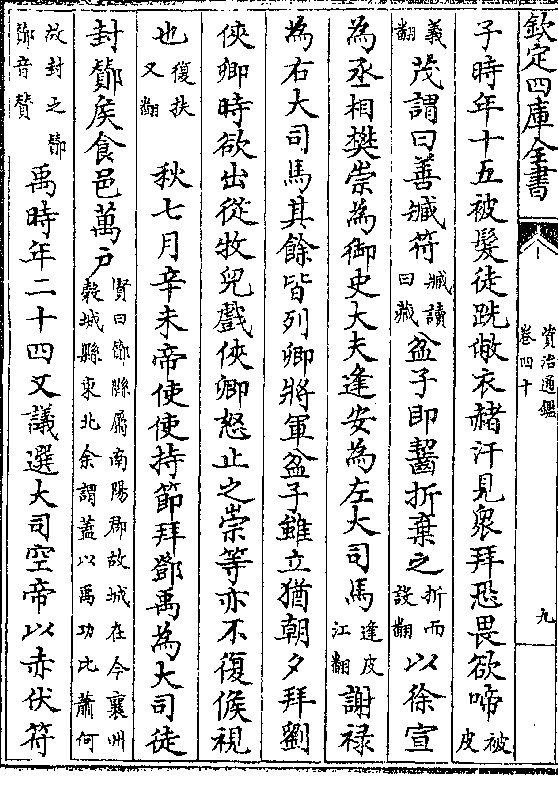 欽定四庫全書
資治通鑑
卷四十
九
子時年十五被髮徒跣敝衣赭汗見衆拜恐畏欲啼被皮
義翻茂謂曰善臧符臧讀曰藏盆子即齧折棄之折而設翻以徐宣
為丞相樊崇為御史大夫逢安為左大司馬逢皮江翻謝禄
為右大司馬其餘皆列卿將軍盆子雖立猶朝夕拜劉
俠卿時欲出從牧兒戲俠卿怒止之崇等亦不復候視
也復扶又翻秋七月辛未帝使使持節拜鄧禹為大司徒
封酇侯食邑萬户賢曰酇縣屬南陽郡故城在今襄州穀城縣東北余謂蓋以禹功比蕭何
故封之酇酇音贊禹時年二十四又議選大司空帝以赤伏符